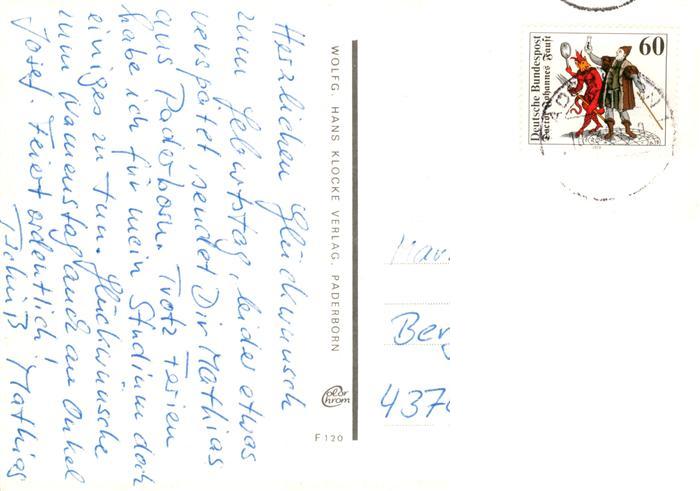 Herzlichen Glückwunsch
zum Geburtstag, leider etwas
verspätet, sendet Dir Mathias
aus Paderborn. Trotz Ferien
habe ich für mein Studium doch
einiges zu tun. Glückwünsche
zum Namenstag auch an Onkel
Josef. Feiert ordentlich!
Tschüß Mathias
WOLFG. HANS KLOCKE VERLAG, PADERBORN
Color Chrom
F 120
Deutsche Bundespost
Doctor Johannes Faust
60
Mar.
Berg
4370